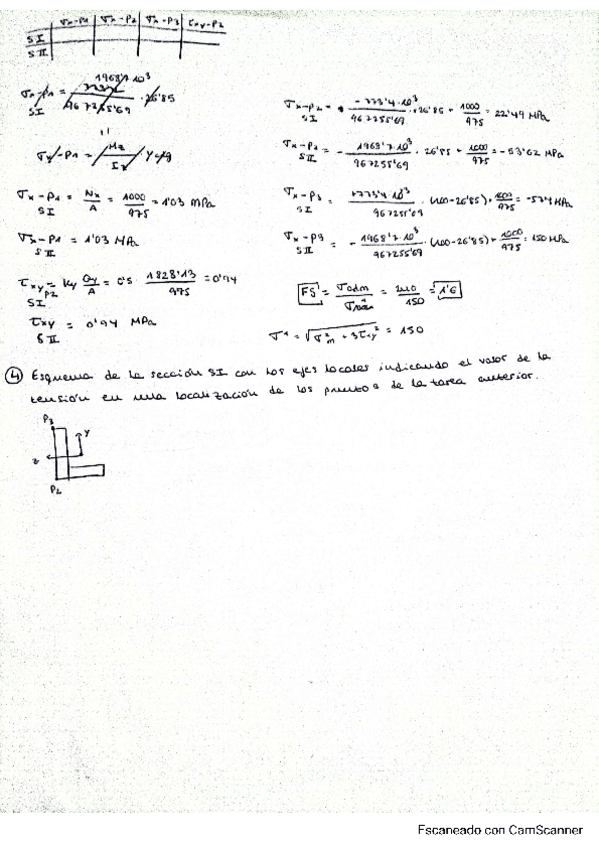 σx-P1 | σx-P2 | σx-P3 | τxy-P2
SI
SII
σx-P1 = 1968'7·10³ / 967255'69 · 26'85
SI
σx-P1 = Mz / Iz · y
σx-P1 = Nx/A = 1000/975 = 1'03 MPa
SI
σx-P1 = 1'03 MPa
SII
τxy = Ky Qy/A = 0'5 · 1828'13/975 = 0'94
P2
SI
τxy = 0'94 MPa
SII
σx-P2 = - -773'4·10³/967255'69 · 26'85 + 1000/975 = 22'49 MPa
SI
σx-P2 = - 1968'7·10³/967255'69 · 26'85 + 1000/975 = -53'62 MPa
SII
σx-P3 = +773'4·10³/967255'69 · (100-26'85) + 1000/975 = MPa
SI
σx-P3 = - 1968'7·10³/967255'69 · (100-26'85) + 1000/975 = 150 MPa
SII
FS = σadm/σmáx = /150 = 1'6
σ* = √σm² + 3τxy² = 150
4 Esquema de la sección SI con los ejes locales indicando el valor de la
tensión en una localización de los puntos de la tarea anterior.
P3
y
z
P2
Escaneado con CamScanner